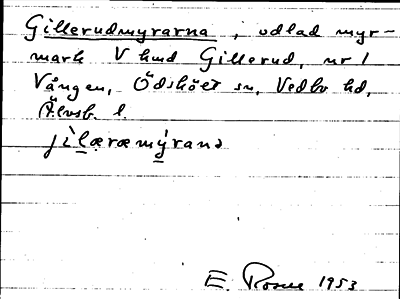 Gillerudmyrarna, odlad myr-
mark V hmd Gillerud, nr 1
Vången, Ödskölt sn, Vedbo hd,
Älvsb. l.
jìlæræmýrana
E. Rosell 1953